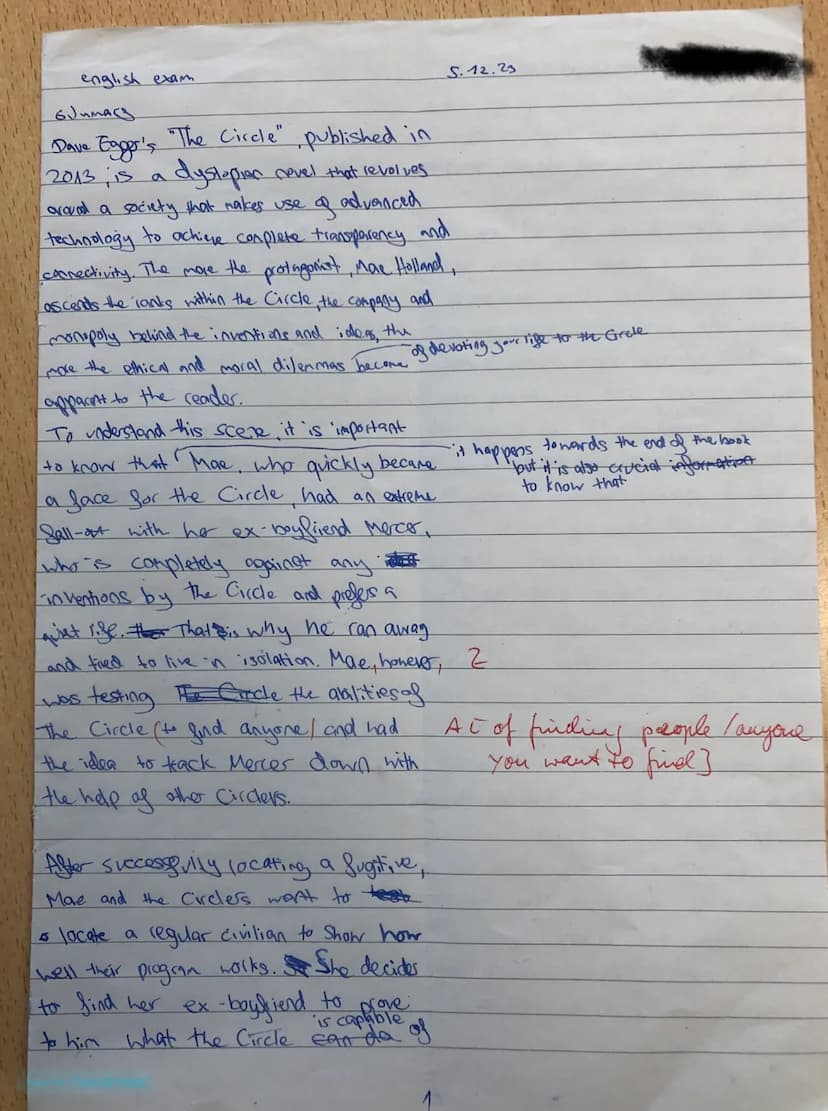 english exam
5.12.23
Summary
Dave Egger's "The Circle", published in
2013, is a dystopian novel that revolves
around a society that makes use of advanced
technology to achieve complete transparency and
connectivity. The more the protagonist, Mae Holland,
ascends the ranks within the Circle, the company and
monopoly behind the inventions and ideas, the
more the ethical and moral dilemmas of devoting your life to the Circle become
apparent to the reader.
To understand this scene, it is important
to know that it happens towards the end of the book
but it is also crucial information
to know that
Mae, who quickly became
a face for the Circle, had an extreme
fall-out with her ex-boyfriend Mercer,
who is completely against any
inventions by the Circle and prefers a
quiet life. That is why he ran away
and tried to live in isolation. Mae, however, Z
was testing The Circle the abilities of
The Circle (to find anyone) and had
A [ of finding people / anyone
you want to find]
the idea to track Mercer down with
the help of other Circlers.
After successfully locating a fugitive,
Mae and the Circlers want to
locate a regular civilian to show how
well their program works. She decides
to find her ex-boyfriend to prove
to him what the Circle can do is capable of
1